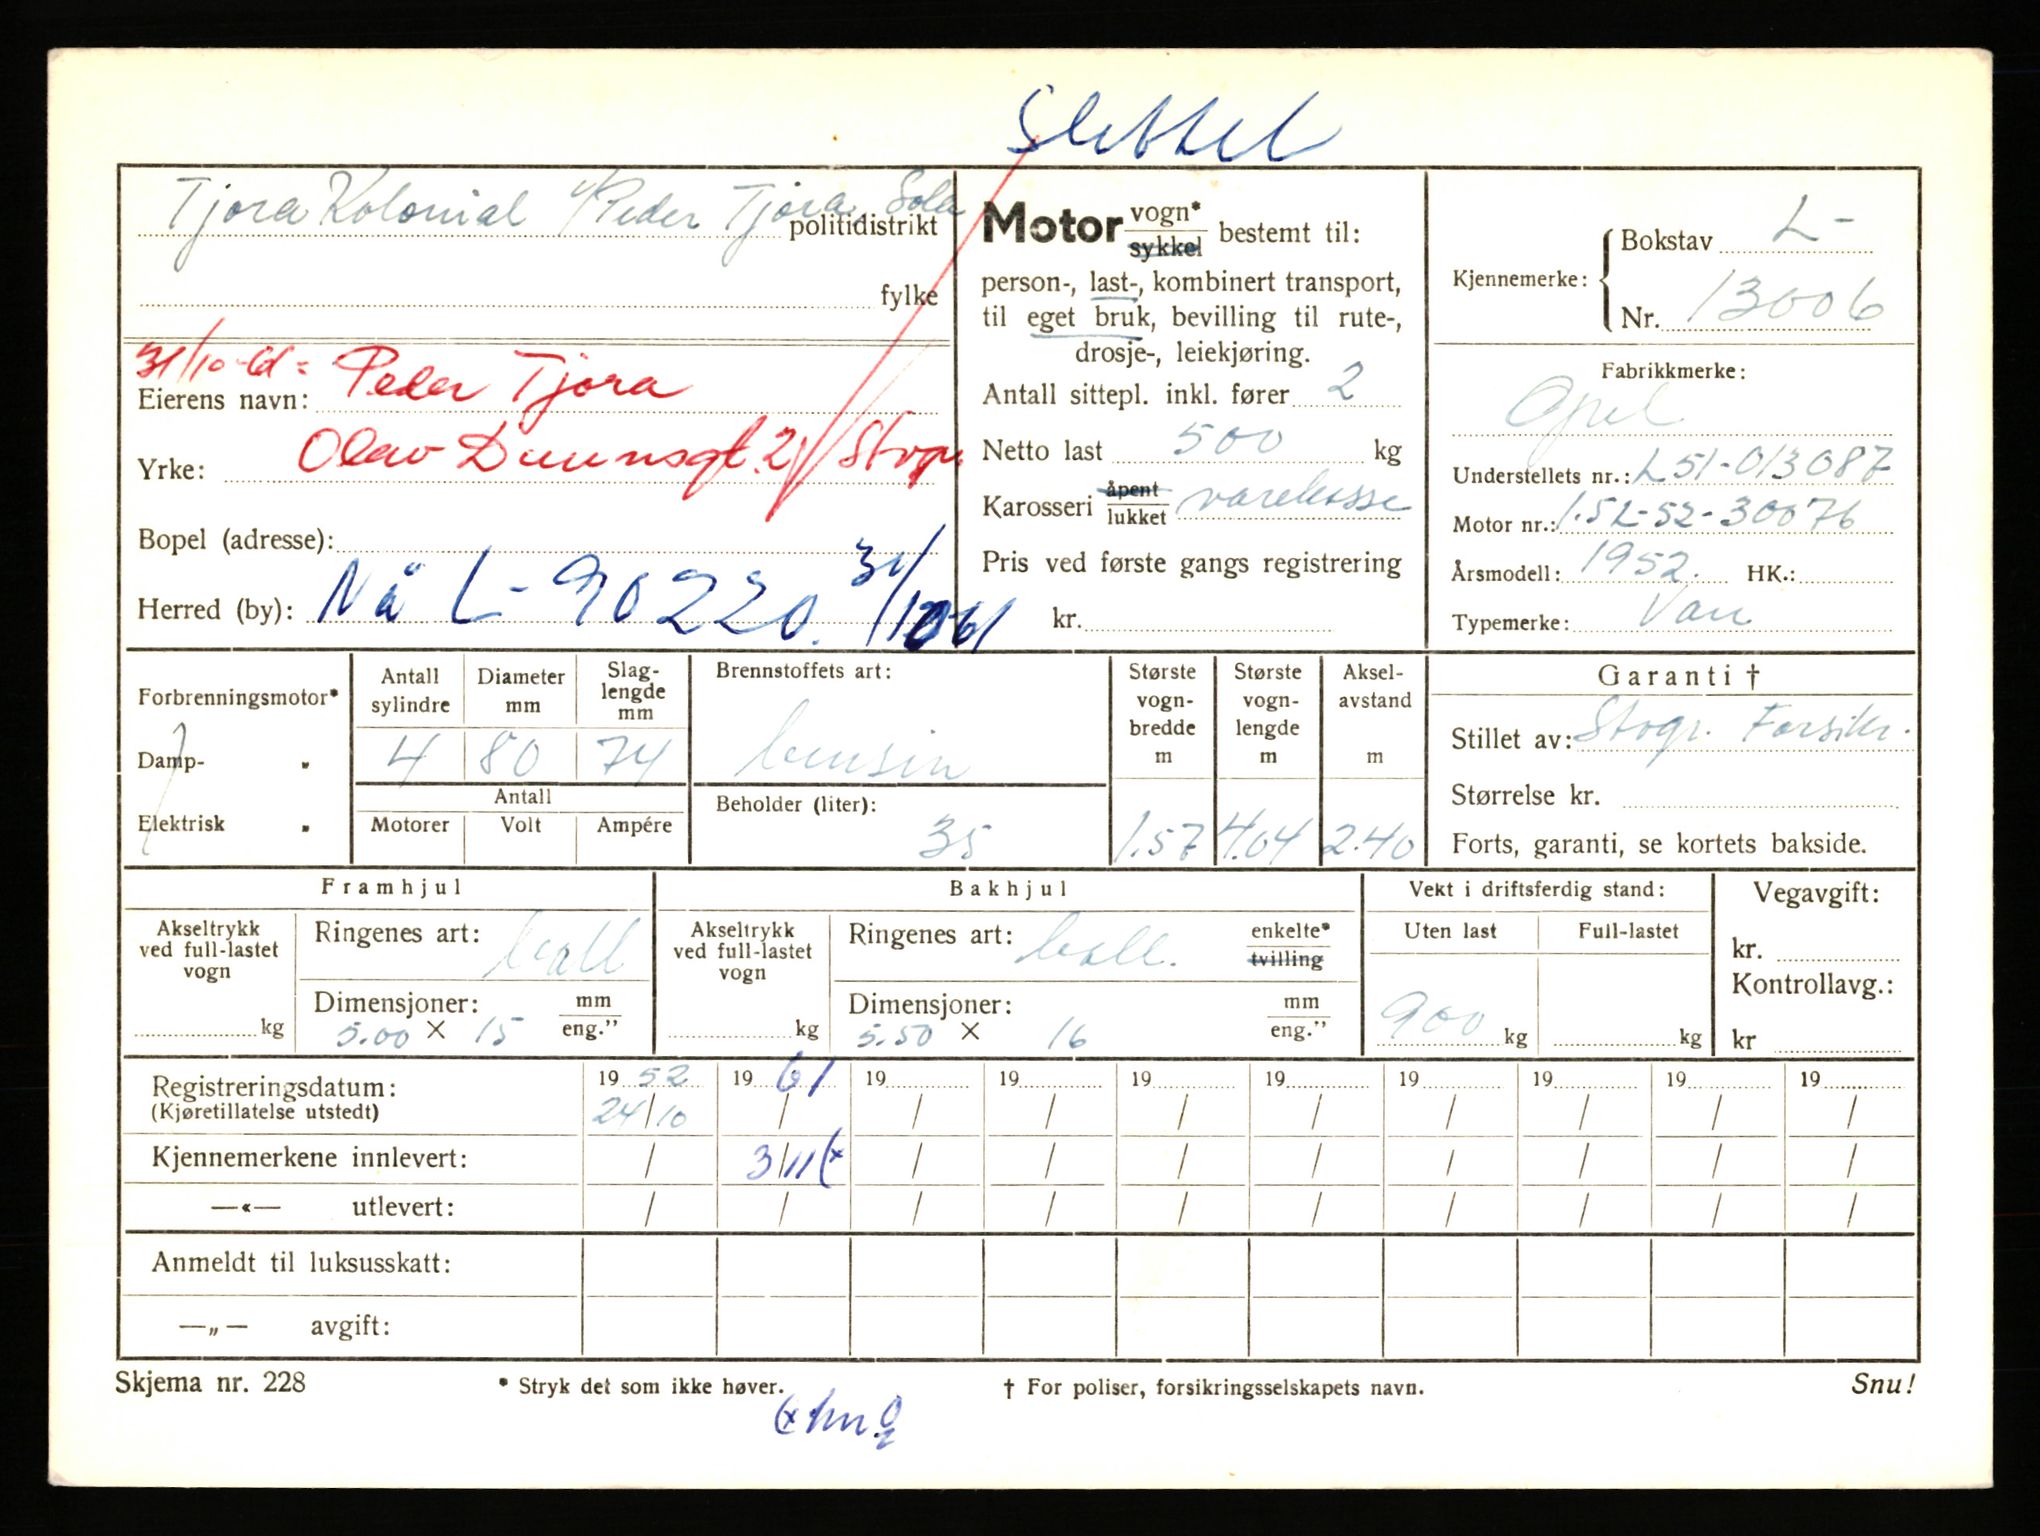 Slettet
Tjora Kolonial v/Peder Tjora, Sola
politidistrikt
fylke
31/10-61 = Peder Tjora
Eierens navn:
Olav Duunsgt. 21 Stvgr.
Yrke:
Bopel (adresse):
Nå L-90220. 31/10-61
Herred (by):
Motor vogn* sykkel bestemt til:
person-, last-, kombinert transport,
til eget bruk, bevilling til rute-,
drosje-, leiekjøring.
Antall sittepl. inkl. fører 2
Netto last 500 kg
Karosseri åpent lukket varekasse
Pris ved første gangs registrering
kr.
Kjennemerke: Bokstav L-
Nr. 13006
Fabrikkmerke:
Opel
Understellets nr.: L51-013087
Motor nr.: 1.5L-52-30076
Årsmodell: 1952. HK.:
Typemerke: Van
Forbrenningsmotor*
Damp- "
Elektrisk "
Antall sylindre Diameter mm Slag-lengde mm
4 80 74
Antall
Motorer Volt Ampére
Brennstoffets art:
bensin
Beholder (liter):
35
Største vogn-bredde m Største vogn-lengde m Aksel-avstand m
1.57 4.04 2.40
Garanti †
Stillet av: Stvgr. Forsikr.
Størrelse kr.
Forts, garanti, se kortets bakside.
Framhjul
Akseltrykk ved full-lastet vogn
kg
Ringenes art: ball
Dimensjoner: mm eng."
5.00 × 15
Bakhjul
Akseltrykk ved full-lastet vogn
kg
Ringenes art: ball. enkelte* tvilling
Dimensjoner: mm eng."
5.50 × 16
Vekt i driftsferdig stand:
Uten last Full-lastet
900 kg kg
Vegavgift:
kr.
Kontrollavg.:
kr
Registreringsdatum: 19 52 19 61 19 19 19 19 19 19 19 19
(Kjøretillatelse utstedt) 24/10 / / / / / / / / /
Kjennemerkene innlevert: / 3/11 (x / / / / / / / /
—«— utlevert: / / / / / / / / / /
Anmeldt til luksusskatt:
—„— avgift:
Skjema nr. 228 * Stryk det som ikke høver. † For poliser, forsikringsselskapets navn. Snu!